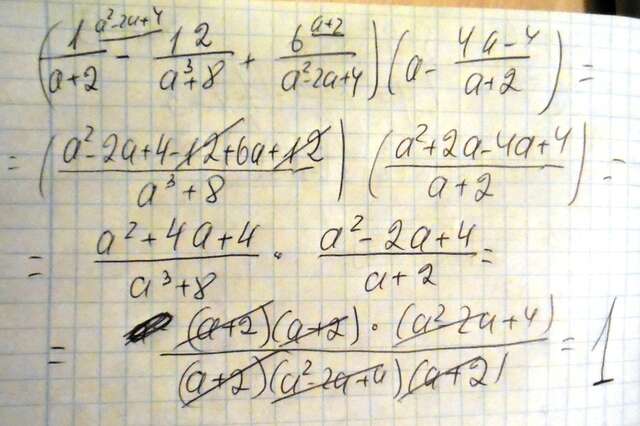 (1^{a²-2a+4}/(a+2) - 12/(a³+8) + 6^{a+2}/(a²-2a+4)) (a - (4a-4)/(a+2)) =
= ((a²-2a+4-12+6a+12)/(a³+8)) ((a²+2a-4a+4)/(a+2)) =
= (a²+4a+4)/(a³+8) · (a²-2a+4)/(a+2) =
= ((a+2)(a+2)·(a²-2a+4))/((a+2)(a²-2a+4)(a+2)) = 1